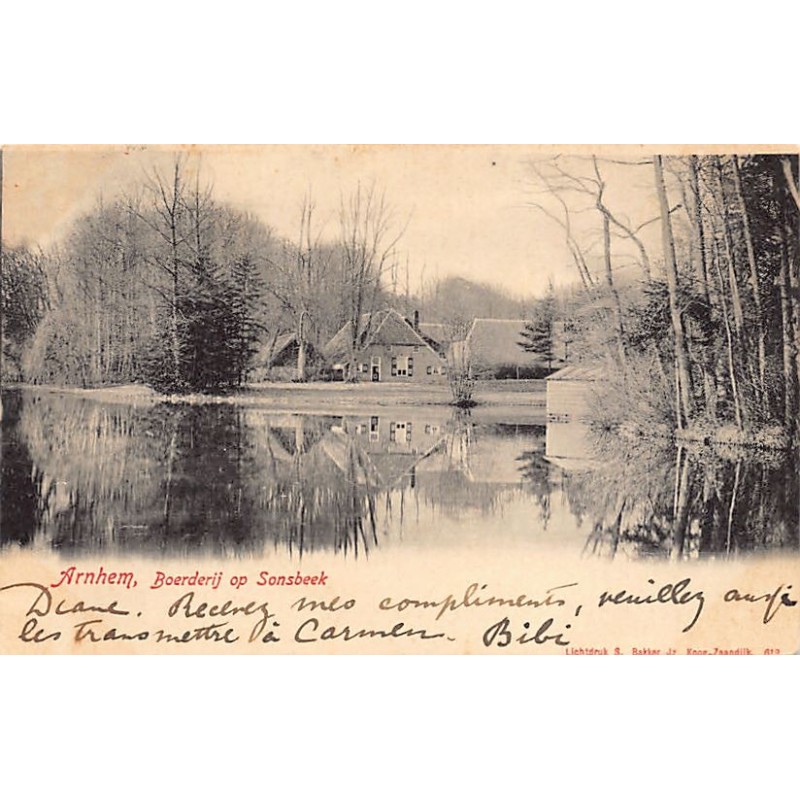 Arnhem, Boerderij op Sonsbeek
Diane. Recevez mes compliments, veuillez aussi
les transmettre à Carmen. Bibi
Lichtdruk S. Bakker Jz. Koog-Zaandijk. 612